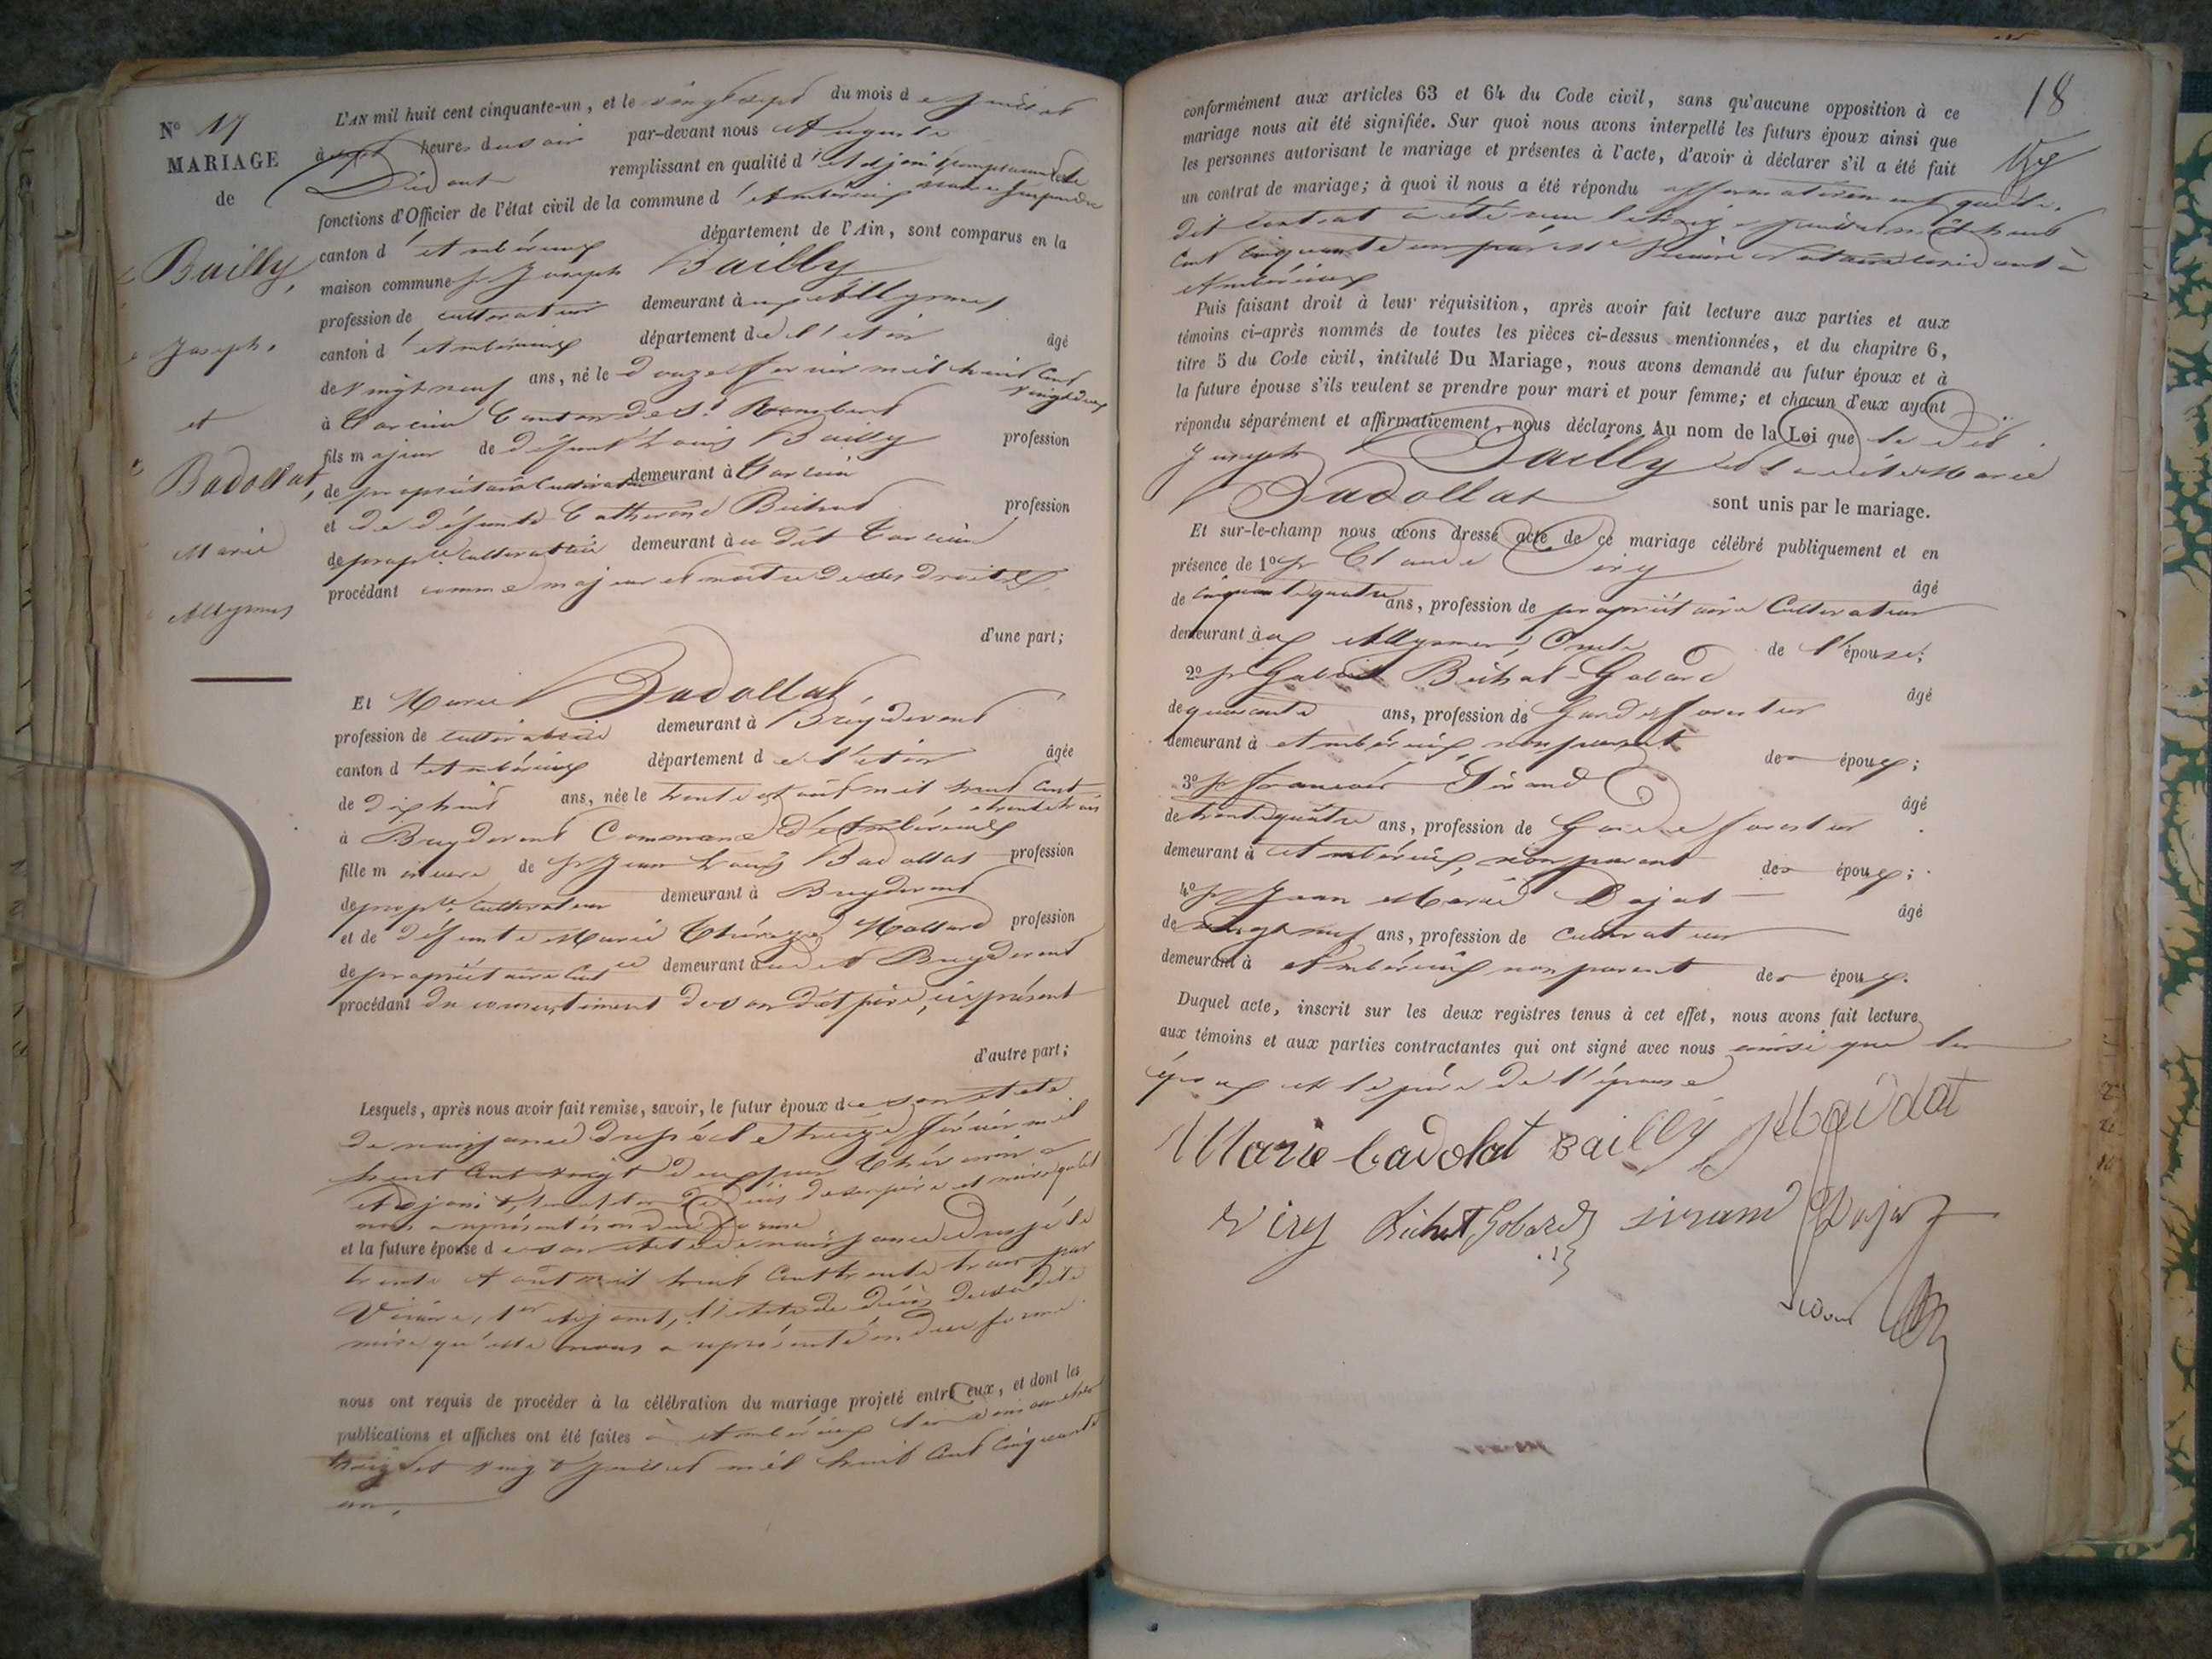 N° 17
MARIAGE
de
Bailly,
Joseph,
et
Badollat,
Marie
Allymes
L'AN mil huit cent cinquante-un, et le vingt sept du mois de Juillet
à sept heures du soir par-devant nous Auguste
remplissant en qualité d'adjoint
fonctions d'Officier de l'état civil de la commune d'Ambérieux
canton d'Ambérieux département de l'Ain, sont comparus en la
maison commune Sr Joseph Bailly
profession de cultivateur demeurant aux Allymes
canton d'Ambérieux département de l'Ain âgé
de vingt neuf ans, né le douze février mil huit cent
vingt deux
à Torcieu Canton de St Rambert
fils majeur de défunt Louis Bailly profession
de propriétaire Cultivateur demeurant à Torcieu
et de défunte Catherine profession
de propre cultivatrice demeurant au dit Torcieu
procédant comme majeur et maitre de ses droits
d'une part;
Et Marie Badollat,
profession de cultivatrice demeurant à Breydevent
canton d'Ambérieux département de l'Ain âgée
de dix huit ans, née le trente août mil huit cent
trente trois
à Breydevent Commune d'Ambérieux
fille mineure de Sr Jean Louis Badollat profession
de propre cultivateur demeurant à Breydevent
et de défunte Marie Thérèze profession
de propriétaire Cultce demeurant au dit Breydevent
procédant du consentement de son dit père, ici présent
d'autre part;
Lesquels, après nous avoir fait remise, savoir, le futur époux de son acte
de naissance dressé le treize février mil
huit cent vingt deux par
Adjoint, de son père et mère qu'il
nous a représentés en due forme
et la future épouse de son acte de naissance dressé le
trente Août mil huit cent trente trois par
1er Adjoint, l'acte de décès de sa dite
mère qu'elle nous a représenté en due forme
nous ont requis de procéder à la célébration du mariage projeté entre eux, et dont les
publications et affiches ont été faites à Ambérieux les dimanches
treize et vingt Juillet mil huit cent cinquante
un.
18
conformément aux articles 63 et 64 du Code civil, sans qu'aucune opposition à ce
mariage nous ait été signifiée. Sur quoi nous avons interpellé les futurs époux ainsi que
les personnes autorisant le mariage et présentes à l'acte, d'avoir à déclarer s'il a été fait
un contrat de mariage; à quoi il nous a été répondu affirmativement que le
dit contrat a été reçu le mil huit
cent cinquante un par Me Notaire résidant à
Ambérieux
Puis faisant droit à leur réquisition, après avoir fait lecture aux parties et aux
témoins ci-après nommés de toutes les pièces ci-dessus mentionnées, et du chapitre 6,
titre 5 du Code civil, intitulé Du Mariage, nous avons demandé au futur époux et à
la future épouse s'ils veulent se prendre pour mari et pour femme; et chacun d'eux ayant
répondu séparément et affirmativement, nous déclarons Au nom de la Loi que le dit
Joseph Bailly et la dite Marie
Badollat sont unis par le mariage.
Et sur-le-champ nous avons dressé acte de ce mariage célébré publiquement et en
présence de 1° Sr Claude Viry âgé
de cinquante quatre ans, profession de propriétaire Cultivateur
demeurant aux Allymes, Oncle de l'épouse;
2° Sr Gabriel Béchet-Gobard âgé
de quarante ans, profession de Garde forestier
demeurant à Ambérieux, non parent des époux;
3° Sr François Sirand âgé
de trente quatre ans, profession de Garde forestier
demeurant à Ambérieux, non parent des époux;
4° Sr Jean Marie Dajat âgé
de vingt neuf ans, profession de cultivateur
demeurant à Ambérieux non parent des époux.
Duquel acte, inscrit sur les deux registres tenus à cet effet, nous avons fait lecture
aux témoins et aux parties contractantes qui ont signé avec nous ainsi que les
époux et le père de l'épouse
Marie badolat Bailly
Viry Béchet Gobard sirand Dajat